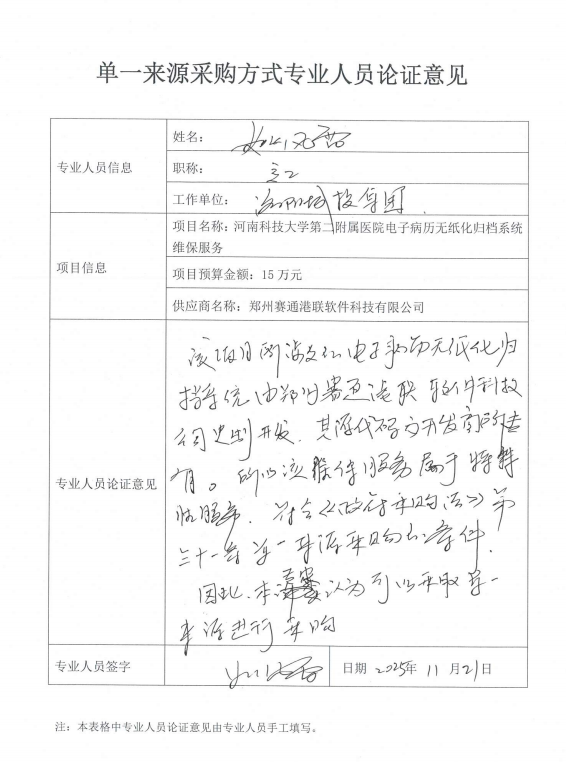 单一来源采购方式专业人员论证意见
专业人员信息
姓名：
职称：
工作单位： 投集团
项目信息
项目名称：河南科技大学第二附属医院电子病历无纸化归档系统
维保服务
项目预算金额：15万元
供应商名称：郑州赛通港联软件科技有限公司
专业人员论证意见
该项目所涉及的电子病历无纸化归
档系统由郑州赛通港联软件科技
公司定制开发，其源代码为开发商所专
有。所以该维保服务属于特
服务，符合《政府采购法》第
三十一条单一来源采购的条件，
因此，本 认为可以采取单一
来源进行采购
专业人员签字
日期 2025年 11月21日
注：本表格中专业人员论证意见由专业人员手工填写。